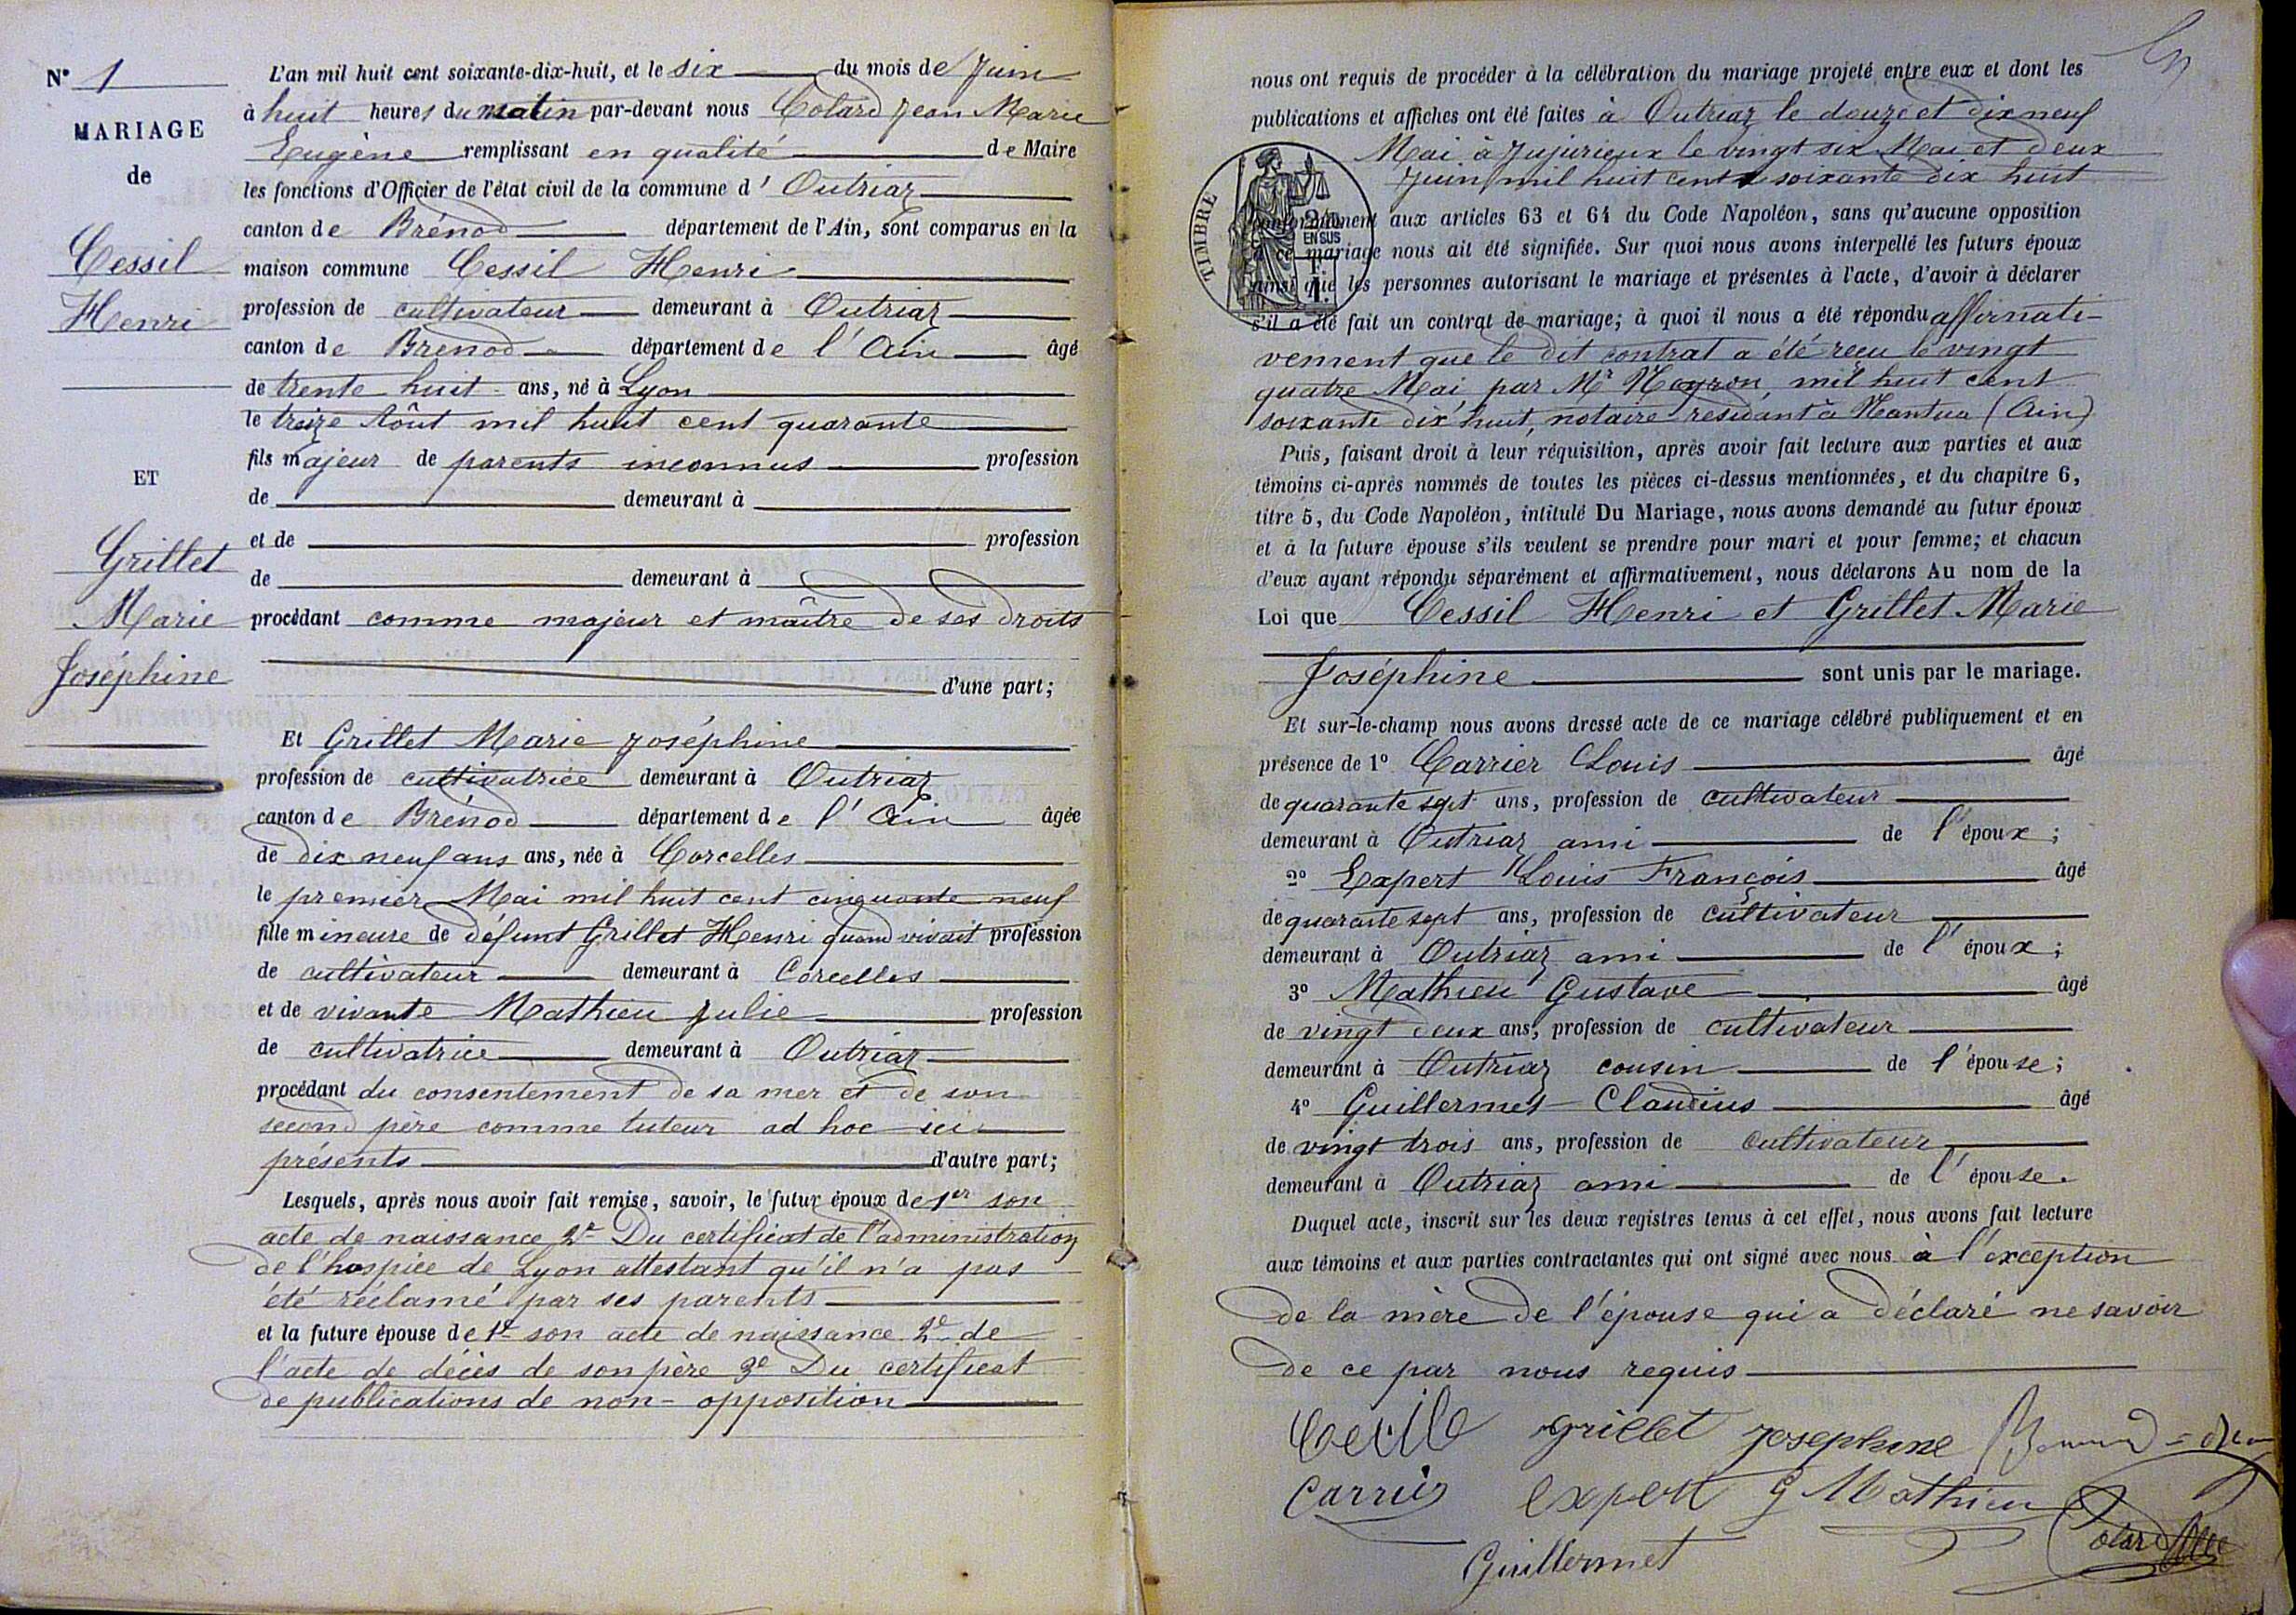 N° 1
MARIAGE
de
Cessil
Henri
ET
Grillet
Marie
Joséphine
L'an mil huit cent soixante-dix-huit, et le six du mois de Juin
à huit heures du matin par-devant nous Colard Jean Marie
Eugène remplissant en qualité de Maire
les fonctions d'Officier de l'état civil de la commune d' Outriaz
canton de Brénod département de l'Ain, sont comparus en la
maison commune Cessil Henri
profession de cultivateur demeurant à Outriaz
canton de Brénod département de l'Ain âgé
de trente huit ans, né à Lyon
le treize Aôut mil huit cent quarante
fils majeur de parents inconnus profession
de demeurant à
et de profession
de demeurant à
procédant comme majeur et maître de ses droits
d'une part;
Et Grillet Marie Joséphine
profession de cultivatrice demeurant à Outriaz
canton de Brénod département de l'Ain âgée
de dix neuf ans ans, née à Corcelles
le premier Mai mil huit cent cinquante neuf
fille mineure de défunt Grillet Henri quand vivait profession
de cultivateur demeurant à Corcelles
et de vivante Mathieu Julie profession
de cultivatrice demeurant à Outriaz
procédant du consentement de sa mer et de son
second père comme tuteur ad hoc ici
présents d'autre part;
Lesquels, après nous avoir fait remise, savoir, le futur époux de 1er son
acte de naissance 2e Du certificat de l'administration
de l'hospice de Lyon attestant qu'il n'a pas
été réclamé par ses parents
et la future épouse de 1e son acte de naissance 2e de
l'acte de décès de son père 3e Du certificat
de publications de non-opposition
nous ont requis de procéder à la célébration du mariage projeté entre eux et dont les
publications et affiches ont été faites à Outriaz le douze et dix neuf
Mai à Jujurieux le vingt six Mai et deux
Juin mil huit cent soixante dix huit
TIMBRE
2/10 EN SUS
conformément aux articles 63 et 64 du Code Napoléon, sans qu'aucune opposition
à ce mariage nous ait été signifiée. Sur quoi nous avons interpellé les futurs époux
ainsi que les personnes autorisant le mariage et présentes à l'acte, d'avoir à déclarer
s'il a été fait un contrat de mariage; à quoi il nous a été répondu affirmati-
vement que le dit contrat a été reçu le vingt
quatre Mai, par Mr Neyron, mil huit cent
soixante dix huit, notaire residant à Nantua (Ain)
Puis, faisant droit à leur réquisition, après avoir fait lecture aux parties et aux
témoins ci-après nommés de toutes les pièces ci-dessus mentionnées, et du chapitre 6,
titre 5, du Code Napoléon, intitulé Du Mariage, nous avons demandé au futur époux
et à la future épouse s'ils veulent se prendre pour mari et pour femme; et chacun
d'eux ayant répondu séparément et affirmativement, nous déclarons Au nom de la
Loi que Cessil Henri et Grillet Marie
Joséphine sont unis par le mariage.
Et sur-le-champ nous avons dressé acte de ce mariage célébré publiquement et en
présence de 1° Carrier Louis âgé
de quarante sept ans, profession de cultivateur
demeurant à Outriaz ami de l'époux;
2° Expert Louis François âgé
de quarante sept ans, profession de cultivateur
demeurant à Outriaz ami de l'époux;
3° Mathieu Gustave âgé
de vingt deux ans, profession de cultivateur
demeurant à Outriaz cousin de l'épouse;
4° Guillermet Claudius âgé
de vingt trois ans, profession de cultivateur
demeurant à Outriaz ami de l'épouse.
Duquel acte, inscrit sur les deux registres tenus à cet effet, nous avons fait lecture
aux témoins et aux parties contractantes qui ont signé avec nous à l'exception
de la mère de l'épouse qui a déclaré ne savoir
de ce par nous requis
Cecile grillet Josephine
Carrier expert G Mathieu
Colard
Guillermet